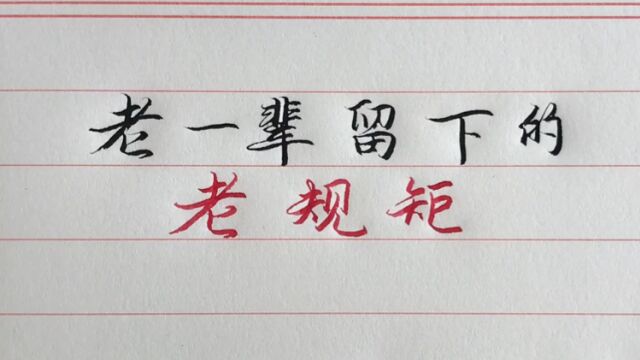 老一辈留下的
老规矩